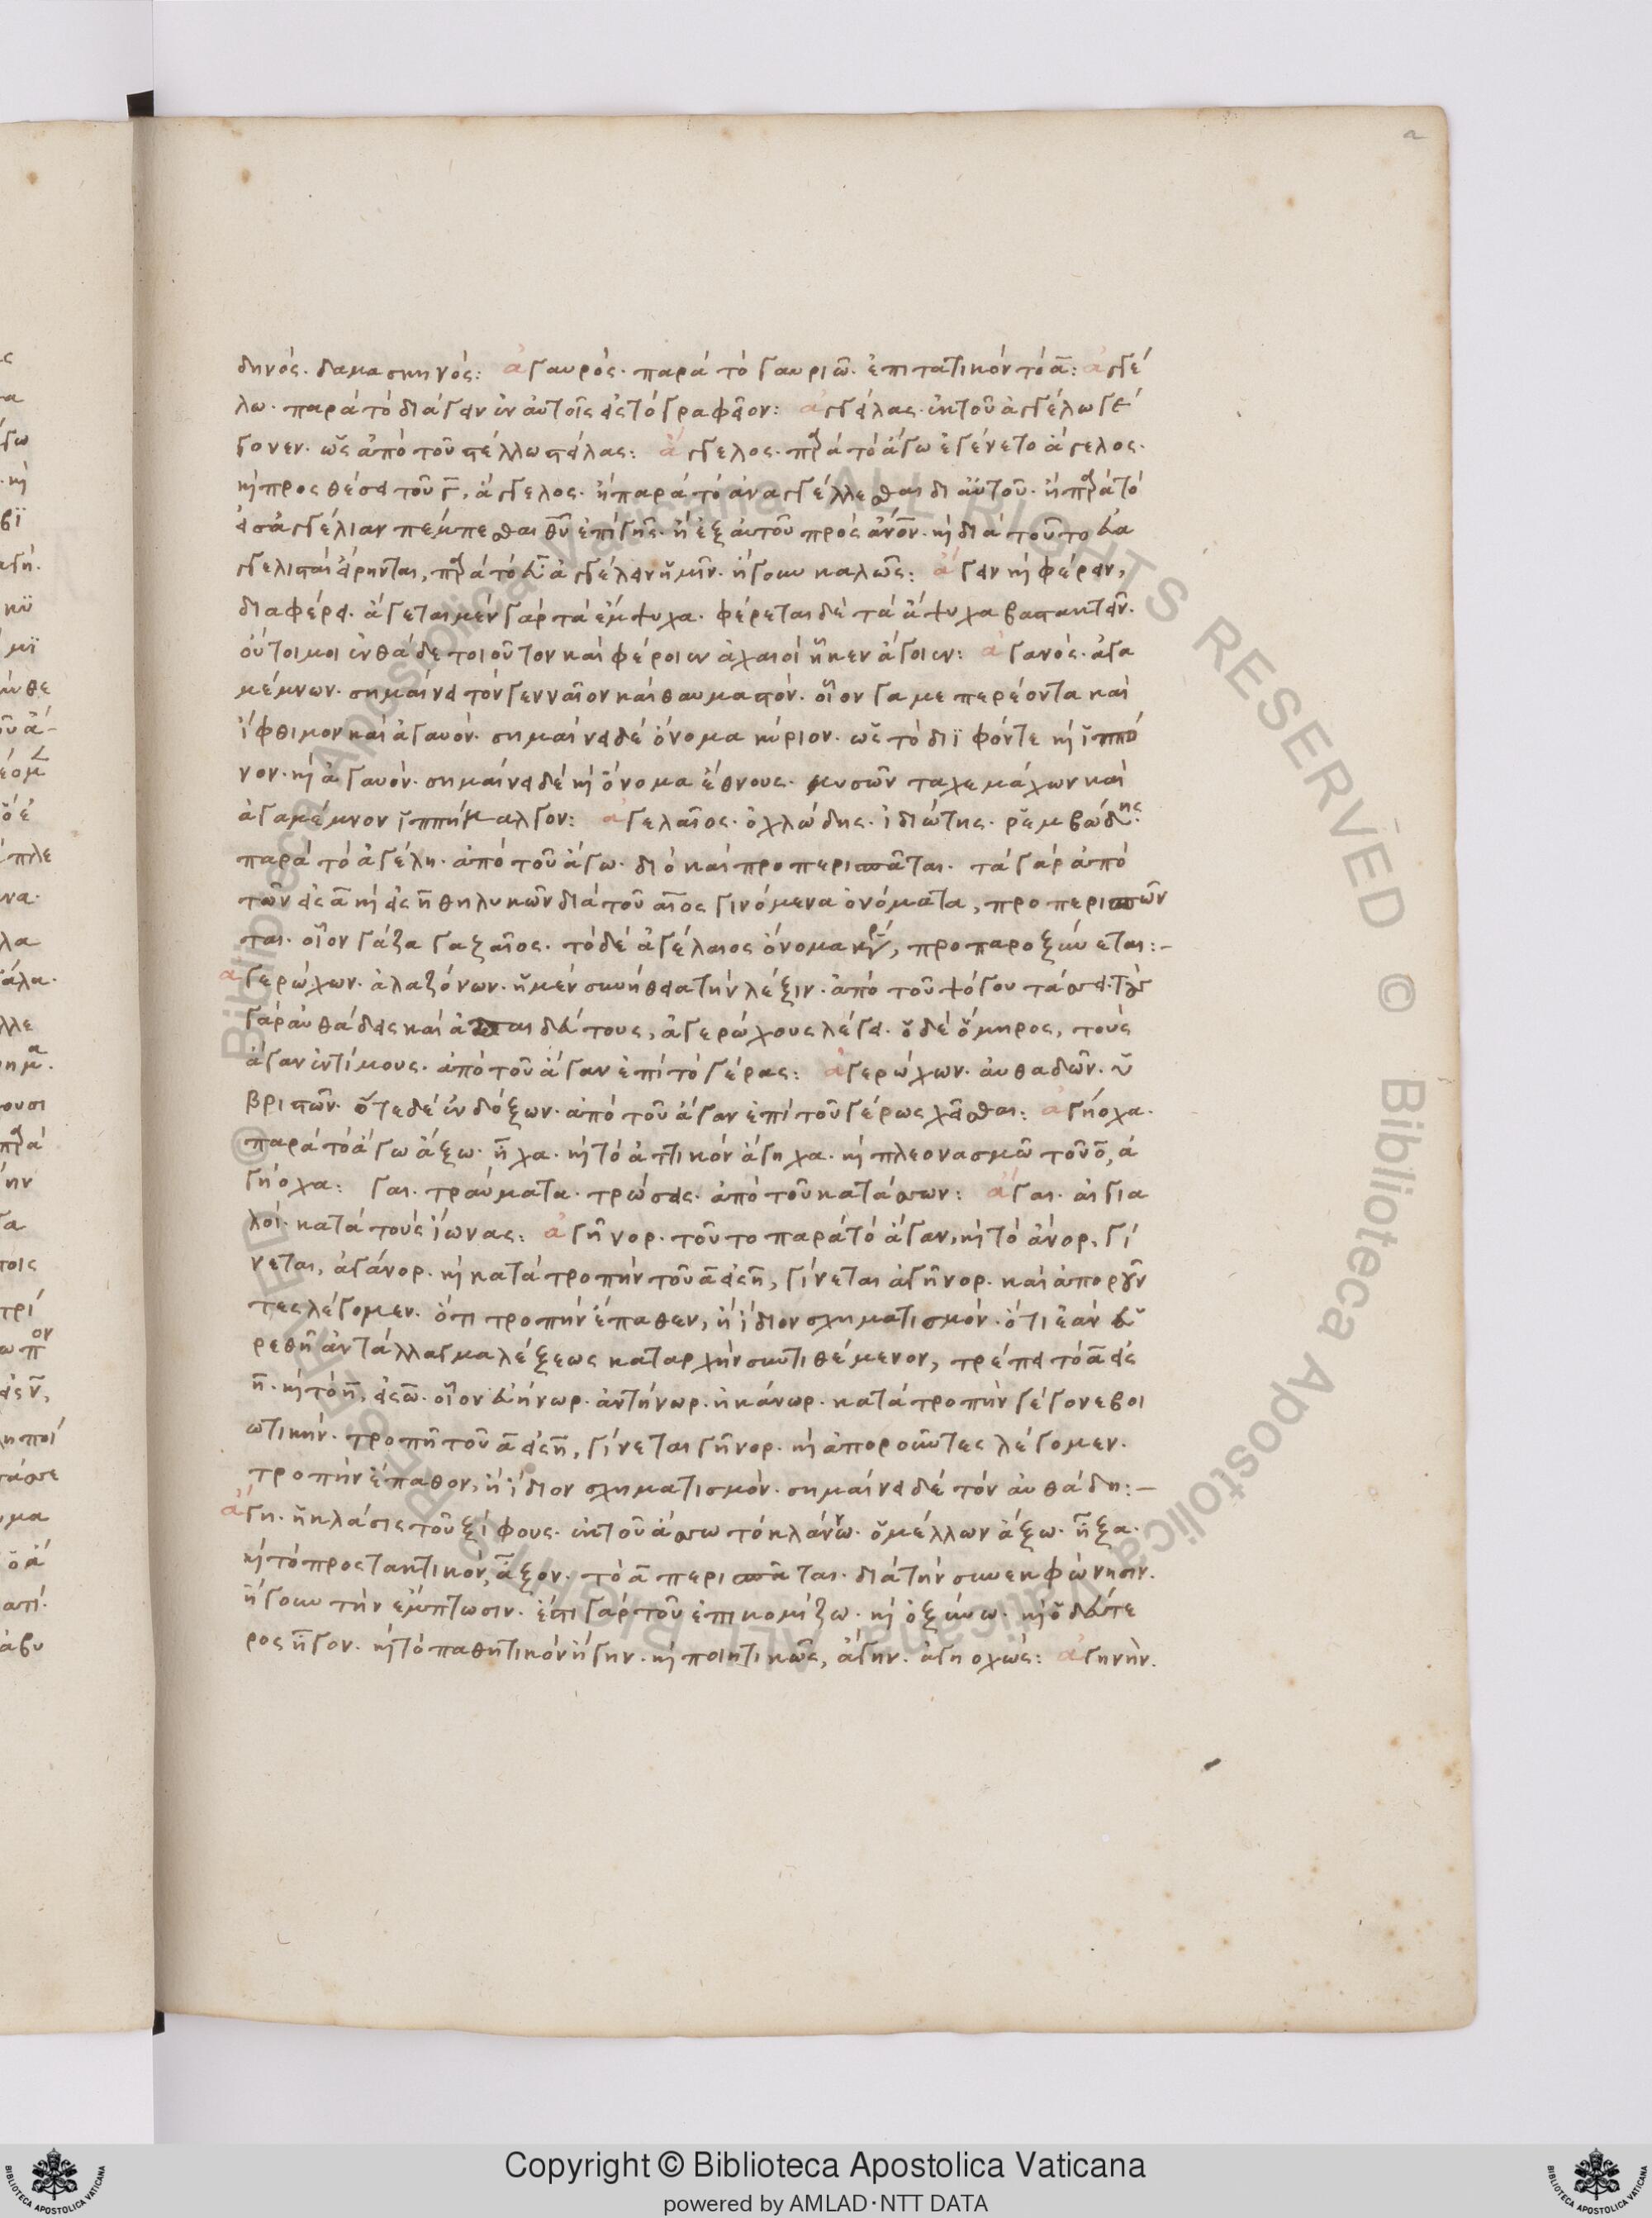 δηνός. δαμασκηνός: ἀγαυρός. παρὰ τὸ γαυριῶ. ἐπιτατικὸν τὸ α̅: ἀγγέ
λω. παρὰ τὸ διάγειν ἐν αὐτοῖς εἰς τὸ γραφεῖον: ἀγγείλας. ἐκ τοῦ ἀγγέλω γέ
γονεν. ὡς ἀπὸ τοῦ στέλλω στείλας: ἄγγελος. παρὰ τὸ ἄγω ἐγένετο ἄγελος.
κ(αὶ) προσθέσει τοῦ γ̅, ἄγγελος. ἢ παρὰ τὸ ἀναγγέλλεσθαι δι αὐτοῦ. ἢ παρὰ τὸ
πέμπεσθαι θ̅υ̅ ἐπὶ γῆς. ἢ ἐξ αὐτοῦ πρὸς ἄν̅ο̅ν̅. κ(αὶ) διὰ τοῦτο εὐα
γγελισταὶ εἴρηνται, παρὰ τὸ εὖ ἀγγέλειν ἡμῖν. ἤγουν καλῶς: ἄγειν κ(αὶ) φέρειν,
διαφέρει. ἄγεται μὲν γὰρ τὰ ἔμψυχα. φέρεται δὲ τὰ ἄψυχα βαστακτεῖν.
οὗτοι μοι ἐνθάδε τοιοῦτον καὶ φέροιεν ἀχαιοὶ ἤκεν ἄγοιεν: ἀγανός. ἀγα
μέμνων. σημαίνει τὸν γενναῖον καὶ θαυμαστόν. οἷον γαμε περέοντα καὶ
ἴφθιμον καὶ ἀγαυόν. σημαίνει δὲ ὄνομα κύριον. ὡς τὸ διϊ φόντε κ(αὶ) ἱππό
νον. κ(αὶ) ἀγαυόν. σημαίνει δὲ κ(αὶ) ὄνομα ἔθνους. μυσῶν ταχεμάχων καὶ
ἀγαμέμνον ἱππημαλγον: ἀγελαῖος. ὀχλώδης. ἰδιώτης. ῥεμβώδης.
παρὰ τὸ ἀγέλη. ἀπὸ τοῦ ἄγω. διὸ καὶ προπερισπᾶται. τὰ γὰρ ἀπὸ
τῶν εἰς α̅ κ(αὶ) εἰς η̅ θηλυκῶν διὰ τοῦ αῖος γινόμενα ὀνόματα, προπερισπῶν
ται. οἷον γάζα γαζαῖος. τὸ δὲ ἀγέλαιος ὄνομα κύρ, προπαροξύνεται:-
ἀγερώχων. ἀλαζόνων. ἡ μὲν συνήθεια τὴν λέξιν. ἀπὸ τοῦ ψόγου τάσσει. τοὺς
γὰρ αὐθάδεις καὶ ἀπαιδεύτους, ἀγερώχους λέγει. ὁ δὲ ὅμηρος, τοὺς
ἄγαν ἐντίμους. ἀπὸ τοῦ ἄγαν ἐπὶ τὸ γέρας: ἀγερώχων. αὐθαδῶν. ὑ
βριστῶν. ὅτε δὲ ἐνδόξων. ἀπὸ τοῦ ἄγαν ἐπὶ τοῦ γέρως χεῖσθαι: ἀγήοχα.
παρὰ τὸ ἄγω ἄξω. ἦχα. κ(αὶ) τὸ ἀττικὸν ἄγηχα. κ(αὶ) πλεονασμῶ τοῦ ο̅, ἀ
γήοχα: γαι. τραύματα. τρώσεις. ἀπὸ τοῦ κατάσσων: ἄγαι. αἰγια
λοί. κατὰ τοὺς ἴωνας: ἀγῆνορ. τοῦτο παρὰ τὸ ἄγαν, κ(αὶ) τὸ ἄνορ, γί
νεται, ἀγάνορ. κ(αὶ) κατὰ τροπὴν τοῦ α̅ εἰς η̅, γίνεται ἀγῆνορ. καὶ ἀποροῦν
τες λέγομεν. ὅτι τροπὴν ἔπαθεν, ἢ ἴδιον σχηματισμόν. ὅτι ἐὰν εὑ
ρεθῆ ἀντάλλαγμα λέξεως καταρχὴν συντιθέμενον, τρέπει τὸ α̅ εἰς
η̅. κ(αὶ) τὸ η̅, εἰς ω̅. οἷον εὐήνωρ. ἀντήνωρ. ἠκάνωρ. κατὰ τροπὴν γέγονε βοι
ωτικήν. τροπῆ τοῦ α̅ εἰς η̅, γίνεται γῆνορ. κ(αὶ) ἀποροῦντες λέγομεν.
τροπὴν ἔπαθον, ἢ ἴδιον σχηματισμόν. σημαίνει δὲ τὸν αὐθάδη:-
ἄγη. ἡ κλάσις τοῦ ξίφους. ἐκ τοῦ ἄσσω τὸ κλάνω. ὁ μέλλων ἄξω. ἦξα.
κ(αὶ) τὸ προστακτικόν, ἆξον. τὸ α̅ περισπᾶται. διὰ τὴν συνεκφώνησιν.
ἤγουν τὴν ἔμπτωσιν. ἐπὶ γὰρ τοῦ ἐπικομίζω. κ(αὶ) ὀξύνω. κ(αὶ) ὁ δεύτε
ρος ἦγον. κ(αὶ) τὸ παθητικὸν ἤγην. κ(αὶ) ποιητικῶς, ἄγην. ἀγηοχώς: ἀγηνήν.
Copyright © Biblioteca Apostolica Vaticana
powered by AMLAD·NTT DATA